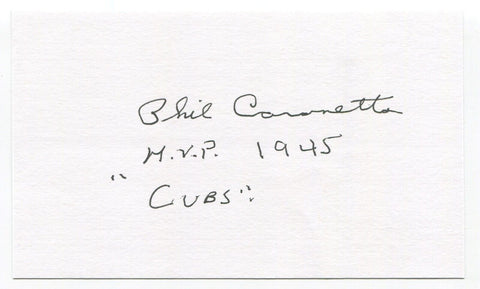 Phil Cavarretta
M.V.P. 1945
"CUBS"